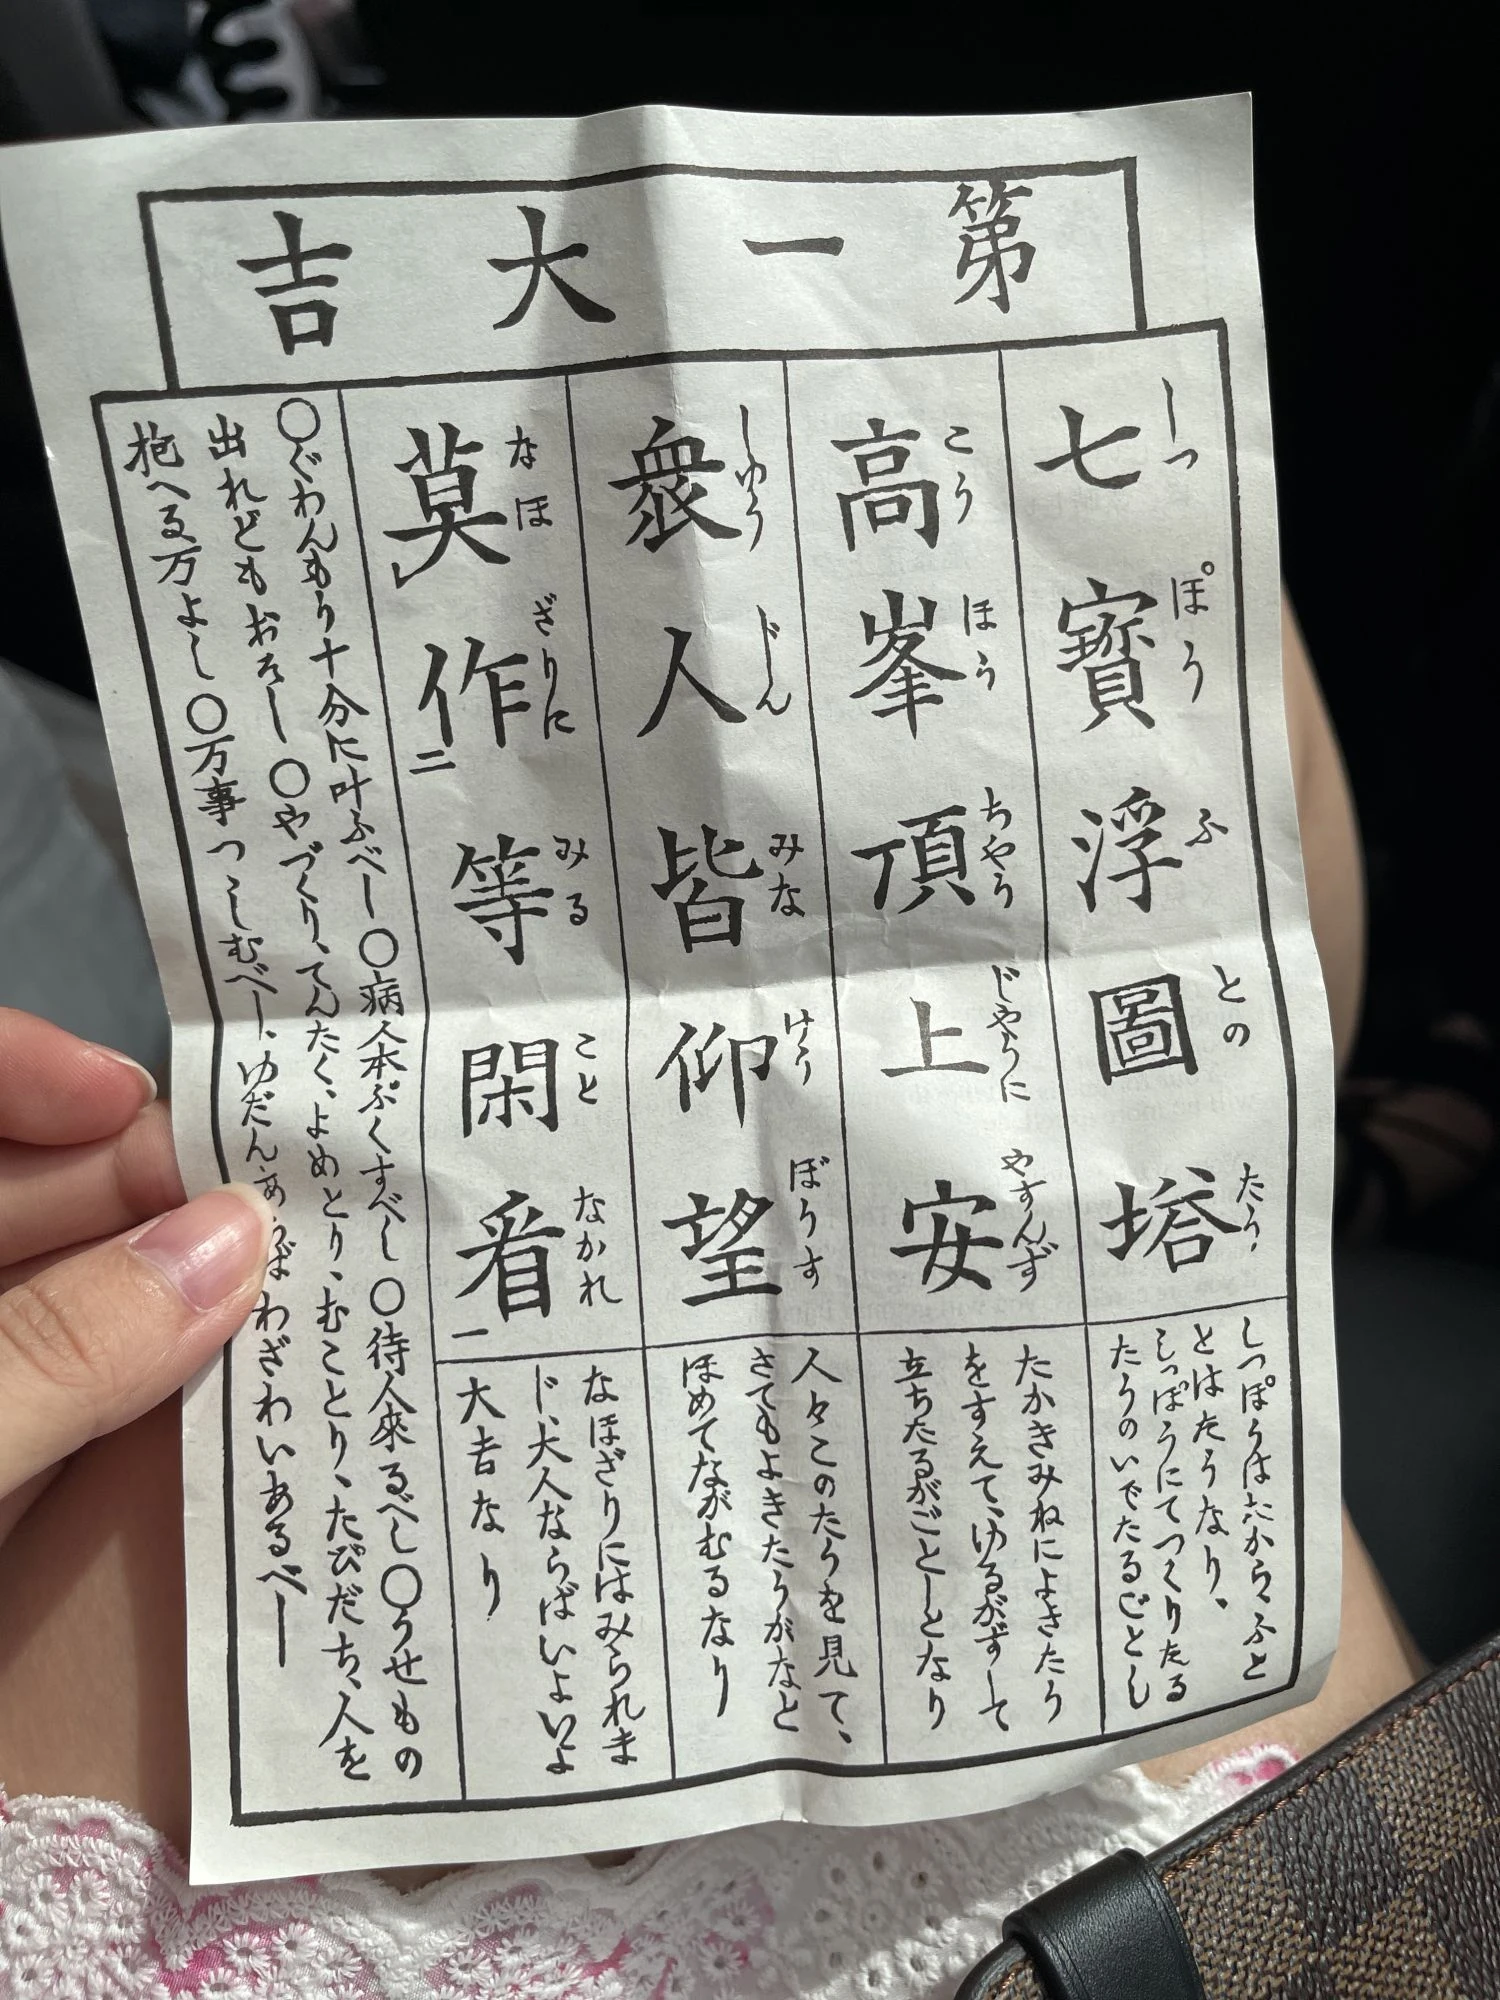 第一大吉
七寶浮圖塔
しつぽうふとのたう
しつぽうはたから、ふと
とはたうなり、
しつぽうにてつくりたる
たうのいでたるごとし
高峯頂上安
こうほうちやうじやうにやすんず
たかきみねによきたう
をすえて、ゆるがずして
立ちたるがごとしとなり
衆人皆仰望
しゆうじんみなけうぼうす
人々このたうを見て、
さてもよきたうがなと
ほめてながむるなり
莫作等閑看
なほざりにみることなかれ
レ二一
なほざりにはみられま
じ、大人ならばいよいよ
大吉なり
〇ぐわんもり十分に叶ふべし〇病人本ぷくすべし〇待人來るべし〇うせもの
出れどもおそし〇やづくり、てんたく、よめとり、むことり、たびだち、人を
抱へる万よし〇万事つゝしむべし、ゆだんあらばわざわいあるべし